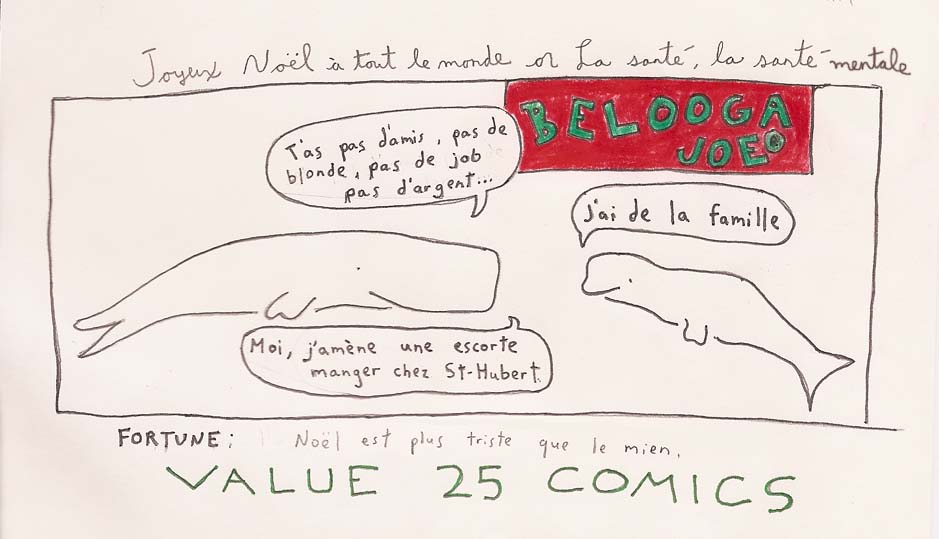 Joyeux Noël à tout le monde or La santé, la santé mentale
BELOOGA
JOE
T'as pas d'amis, pas de
blonde, pas de job
pas d'argent...
J'ai de la famille
Moi, j'amène une escorte
manger chez St-Hubert.
FORTUNE: Noël est plus triste que le mien.
VALUE 25 COMICS